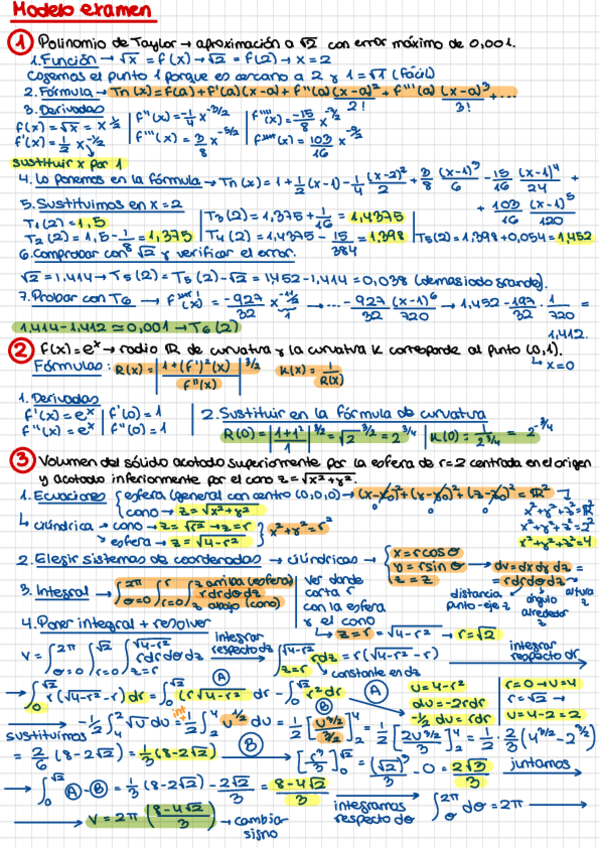 Modelo examen
① Polinomio de Taylor → aproximación a √2 con error máximo de 0,001.
1. Función → √x = f(x) → √2 = f(2) → x = 2
Cogemos el punto 1 porque es cercano a 2 y 1 = √1 (fácil)
2. Fórmula → Tn(x) = f(a) + f'(a)(x-a) + f''(a) (x-a)²/2! + f'''(a) (x-a)³/3! + ...
3. Derivadas
f(x) = √x = x^1/2
f'(x) = 1/2 x^-1/2
f''(x) = -1/4 x^-3/2
f'''(x) = 3/8 x^-5/2
f''''(x) = -15/8
f'''''(x) = 103/16 x
sustituir x por 1
4. Lo ponemos en la fórmula → Tn(x) = 1 + 1/2 (x-1) - 1/4 (x-2)²/2 + 3/8 (x-1)³/6 - 15/16 (x-1)⁴/24 + 103/16 (x-1)⁵/120
5. Sustituimos en x = 2
T₁(2) = 1,5
T₂(2) = 1,5 - 1/8 = 1,375
T₃(2) = 1,375 + 1/16 = 1,4375
T₄(2) = 1,4375 - 15/384 = 1,398
T₅(2) = 1,398 + 0,054 = 1,452
6. Comprobar con √2 y verificar el error.
√2 = 1,414 → T₅(2) = T₅(2) - √2 = 1,452 - 1,414 = 0,038 (demasiado grande).
7. Probar con T6 → (x) = -927/32 x → ... - 927/32 (x-1)⁶/720 → 1,452 - · 1/720 = 1,412.
1,414 - 1,412 ≃ 0,001 → T₆(2)
② f(x) = eˣ → radio R de curvatura y la curvatura K corresponde al punto (0,1).
↳ x=0
Fórmulas: R(x) = |1 + (f')²(x) / f''(x)|^3/2 K(x) = 1/R(x)
1. Derivadas
f'(x) = eˣ | f'(0) = 1
f''(x) = eˣ | f''(0) = 1
2. Sustituir en la fórmula de curvatura
R(0) = |1+1²/1|^3/2 = √2^3/2 = 2^3/4 | K(0) = 1/2^3/4 = 2^-3/4
③ Volumen del sólido acotado superiormente por la esfera de r=2 centrada en el origen
y acotado inferiormente por el cono z = √x²+y².
1. Ecuaciones { esfera (general con centro (0,0,0) → (x-x₀)² + (y-y₀)² + (z-z₀)² = R²
cono → z = √x²+y²
x²+y²+z² = R²
x²+y²+z² = 2²
x²+y²+z² = 4
↳ cilíndrica → cono → z = √r² → z = r
→ esfera → z = √4-r² } x²+y² = r²
2. Elegir sistemas de coordenadas → cilíndricas → { x = r cos θ
y = r sin θ
z = z
→ dv = dx dy dz =
= r dr dθ dz
distancia punto-eje z
ángulo alrededor z
altura z
3. Integral → ∫θ=0 2π ∫r=0 r ∫ z arriba (esfera) r dr dθ dz z abajo (cono)
Ver donde corta r con la esfera y el cono
↳ z = r = √4-r² → r = √2
4. Poner integral + resolver
V = ∫θ=0 2π ∫r=0 √2 ∫z=r √4-r² r dr dθ dz integrar respecto dz → ∫z=r √4-r² r dz = r(√4-r² - r) integrar respecto dr
↳ constante en dz
→ ∫0 √2 r(√4-r² - r) dr = ∫0 √2 (r√4-r² dr - ∫0 √2 r² dr Ⓐ Ⓑ
Ⓐ u = 4-r²
du = -2rdr
-1/2 du = rdr
r=0 → u=4
r=√2 →
u = 4-2 = 2
sustituimos → -1/2 ∫4 2 √u du = 1/2 ∫2 4 u^1/2 du = 1/2 [u^3/2 / 3/2]2 4 = 1/2 [2u^3/2 / 3]2 4 = 1/2 · 2/3 (4^3/2 - 2^3/2)
= 2/6 (8-2√2) = 1/3 (8-2√2) Ⓑ → [-r³/3]0 √2 = (√2)³/3 - 0 = 2√3/3 juntamos
→ ∫0 √2 Ⓐ-Ⓑ = 1/3 (8-2√2) - 2√2/3 = 8-4√2/3 integramos respecto do ∫0 2π dθ = 2π
→ V = 2π (8-4√2/3) → cambiar signo